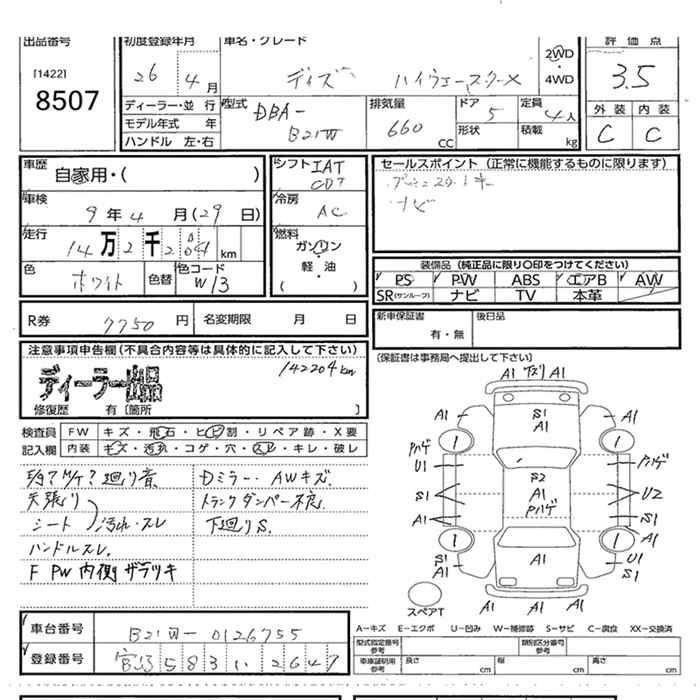 出品番号
[1422]
8507
初度登録年月
26 4月
車名・グレード
デイズ ハイウェースターX
2WD
4WD
評価点
3.5
外装 内装
C C
ディーラー・並行
モデル年式 年
ハンドル 左・右
型式
DBA-
B21W
排気量
660 CC
ドア
5
形状
定員
4人
積載 kg
車歴
自家用・( )
車検
9年4月(29日)
走行
14万2千204km
色
ホワイト
色替
色コード
W13
シフト IAT
CDT
冷房
AC
燃料
ガソリン
軽・油
( )
セールスポイント (正常に機能するものに限ります)
プッシュスタートキー
ナビ
装備品 (純正品に限り〇印をつけてください)
PS PW ABS エアB AW
SR(サンルーフ) ナビ TV 本革
R券 7750円 名変期限 月 日
新車保証書 有・無
後日品
(保証書は事務局へ提出して下さい)
注意事項申告欄(不具合内容等は具体的に記入して下さい)
142204km
ディーラー出品
修復歴 有〔箇所 〕
検査員 FW キズ・飛石・ヒビ割・リペア跡・X要
記入欄 内装 キズ・汚れ・コゲ・穴・スレ・キレ・破レ
廻り音
天張り
シート 汚れ・スレ
ハンドルスレ.
F PW 内側 ザラツキ
Dミラー・AWキズ.
トランクダンパー不良.
下廻りS.
A1 A1
A1 S1 A1 A1
1 1
Pハゲ U1 Pハゲ
S2
A1
Pハゲ
S1 U2
A1 S1
1 1 A1
S1 A1 A1 U1 S1
スペアT
A1 A1 A1
A-キズ E-エクボ U-凹み W-補修跡 S-サビ C-腐食 XX-交換済
型式指定番号 参考
類別区分番号 参考
車庫証明用 参考
長さ cm
幅 cm
高さ cm
車台番号 B21W-0126755
登録番号 583 い 2647